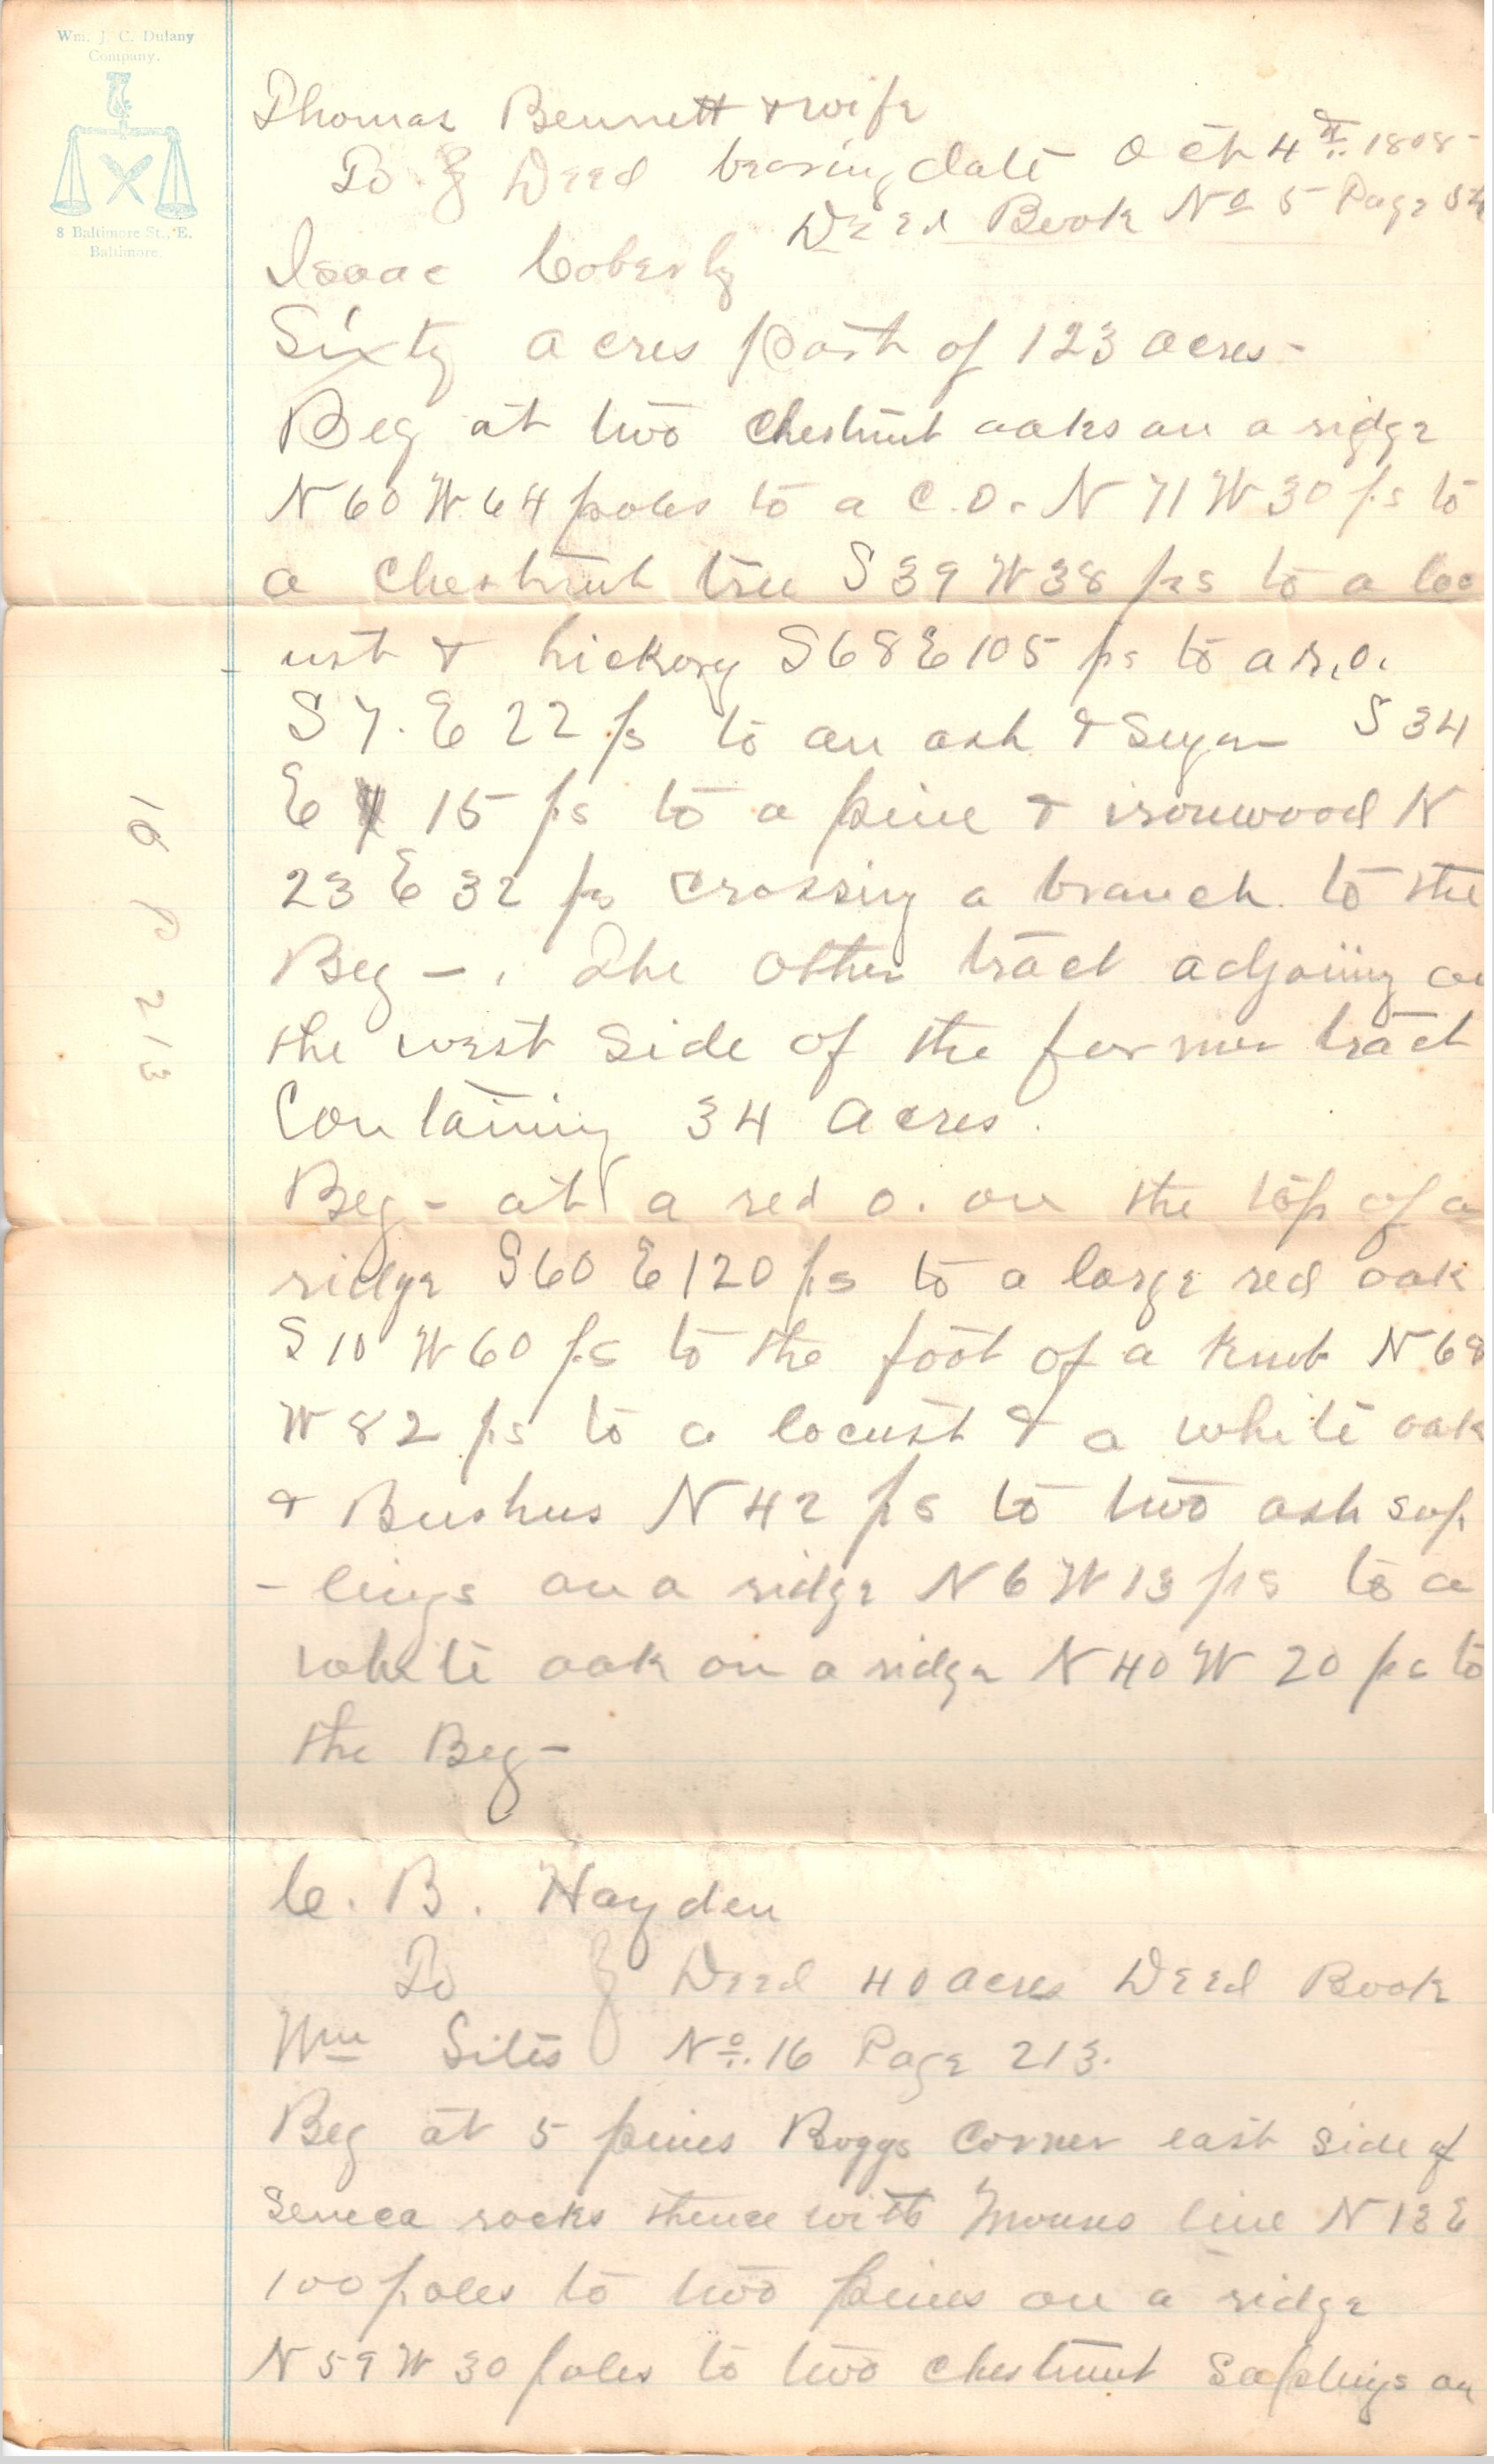 Wm. J. C. Dulany
Company.
8 Baltimore St., E.
Baltimore.
Thomas Bennett & wife
To } Deed bearing date Oct 4th 1808-
Deed Book No 5 Page
Isaac Coberly
Sixty acres part of 123 acres-
Beg at two chestnut oaks on a ridge
N 60 W 64 poles to a C.O. N 71 W 30 ps to
a chestnut tree S 39 W 38 ps to a loc
- ust & hickory S 68 E 105 ps to a r.o.
S 7. E 22 ps to an ash & Sugar S 34
E 15 ps to a pine & ironwood N
23 E 32 ps crossing a branch to the
Beg -. The other tract adjoining on
the west side of the former tract
Containing 34 acres.
Beg - at a red o. on the top of a
ridge S 60 E 120 ps to a large red oak
S 10 W 60 ps to the foot of a knob N 68
W 82 ps to a locust & a white oak
& Bushes N 42 ps to two ash sap
- lings on a ridge N 6 W 13 ps to a
white oak on a ridge N 40 W 20 ps to
the Beg -
C. B. Hayden
To } Deed 40 acres Deed Book
Wm Sites No. 16 Page 213.
Beg at 5 pines Boggs Corner east side of
Seneca rocks thence with line N 13 E
100 poles to two pines on a ridge
N 59 W 30 poles to two chestnut Saplings on
16 P 213